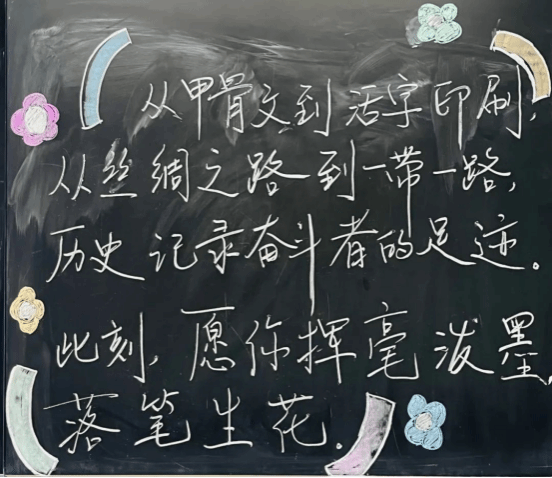 从甲骨文到活字印刷,
从丝绸之路到一带一路,
历史记录奋斗者的足迹。
此刻,愿你挥毫泼墨,
落笔生花.